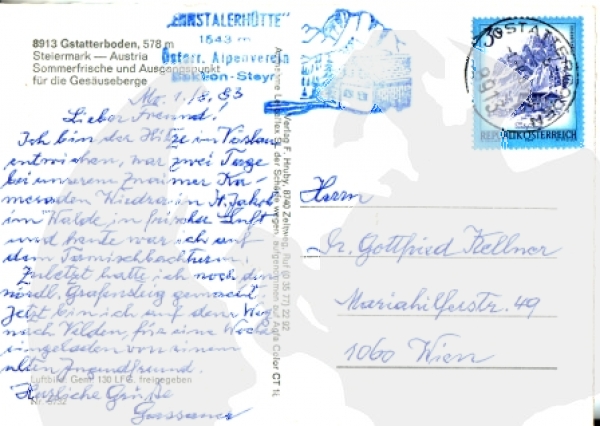 8913 Gstatterboden, 578 m
Steiermark — Austria
Sommerfrische und Ausgangspunkt
für die Gesäuseberge
"ENNSTALERHÜTTE"
1543 m
Österr. Alpenverein
Sektion-Steyr
Mo. 1./8. 83
Lieber Freund!
Ich bin der Hitze in Vöslau
entwichen, war zwei Tage
bei unserem Znaimer Ka-
meraden Wiedra in St. Jakob
im Walde, in frischer Luft
und heute war ich auf
dem Tamischbachturm.
Zuletzt hatte ich noch den
nördl. Grafensteig gemacht.
Jetzt bin ich auf dem Weg
nach Velden, für eine Woche
eingeladen von einem
alten Jugendfreund.
Herzliche Grüße
Luftbild, Gem. 130 LFG. freigegeben
Verlag F. Hruby, 8740 Zeltweg, Ruf (0 35 77) 22 92
der Schärfe wegen, aufgenommen auf Agfa Color CT 18
REPUBLIK ÖSTERREICH
Herrn
Dr. Gottfried Kellner
Mariahilferstr. 49
1060 Wien